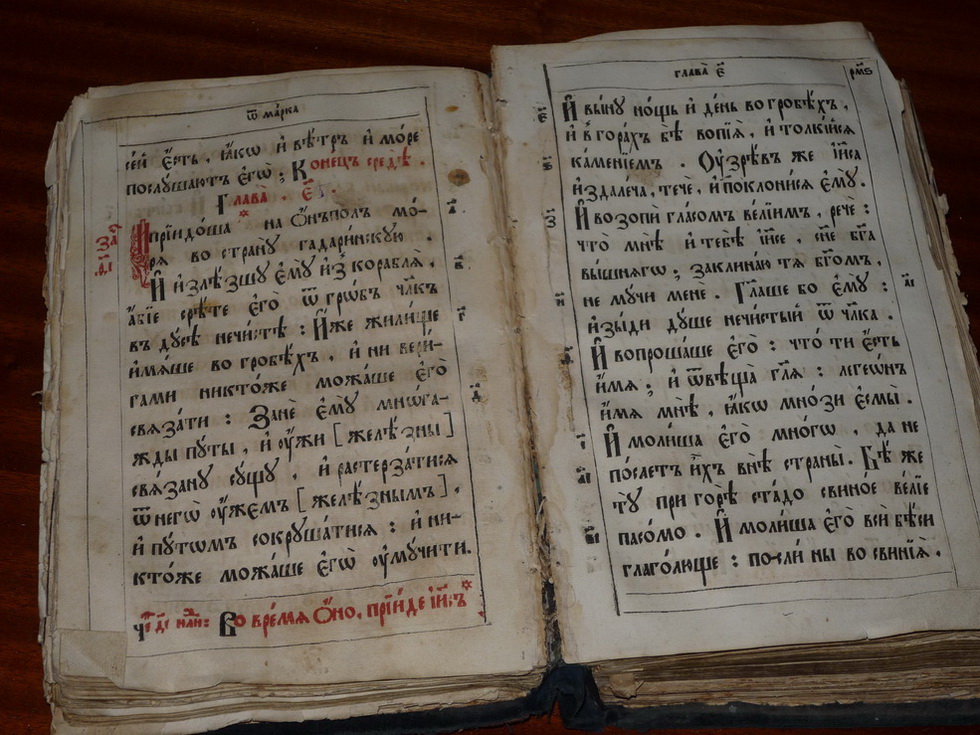 ѿ ма́рка
се́й є҆́сть, ꙗ҆́кѡ и҆ вѣ́тръ и҆ мо́ре
послꙋ́шаютъ є҆гѡ̀; Коне́цъ средѣ̀.
Глава̀. є҃.
И҆ прїидо́ша * на ѻ҆́нъполъ мо́-
рѧ во странꙋ̀ гадари́нскꙋю.
И҆ и҆злѣ́зшꙋ є҆мꙋ̀ и҆з̾ кораблѧ̀,
а҆́бїе срѣ́те є҆го̀ ѿ грѡ́бъ чл҃къ
въ дꙋ́сѣ нечи́стѣ: И҆́же жили́ще
и҆мѧ́ше во гробѣ́хъ, и҆ ни вери́-
гами никто́же можа́ше є҆го̀
свѧза́ти: Занѐ є҆мꙋ̀ мно́га-
жды пꙋ́ты, и҆ ᲂу҆́жи [желѣ́зны]
свѧ́занꙋ сꙋ́щꙋ, и҆ растерза́тисѧ
ѿ негѡ̀ ᲂу҆́жємъ [желѣ́знымъ],
и҆ пꙋ́тѡмъ сокрꙋша́тисѧ: и҆ ни-
кто́же можа́ше є҆гѡ̀ ᲂу҆мꙋ́чити.
Во вре́мѧ ѻ҆́но, прїи́де і҆и҃съ *
глава̀ є҃
рмѕ
И҆ вы́нꙋ но́щь и҆ де́нь во гробѣ́хъ,
и҆ в̾ гора́хъ бѣ̀ вопїѧ̀, и҆ толкі́йсѧ
ка́менїемъ. Оу҆зрѣ́въ же і҆и҃са
и҆здале́ча, течѐ, и҆ поклони́сѧ є҆мꙋ̀.
И҆ возопѝ гла́сомъ ве́лїимъ, речѐ:
что̀ мнѣ̀ и҆ тебѣ̀ і҆и҃се, сн҃е бг҃а
вы́шнѧгѡ; заклина́ю тѧ̀ бг҃омъ,
не мꙋ́чи менѐ. Гл҃аше бо є҆мꙋ̀:
и҆зы́ди дꙋ́ше нечи́стый ѿ чл҃ка.
И҆ вопроша́ше є҆го̀: что́ ти є҆́сть
и҆́мѧ; и҆ ѿвѣща̀ гл҃ѧ: легеѡ́нъ
и҆́мѧ мнѣ̀, ꙗ҆́кѡ мно́зи є҆смы̀.
И҆ моли́ша є҆го̀ мно́гѡ, да не
по́слетъ и҆̀хъ внѣ̀ страны̀. Бѣ́ же
тꙋ̀ при горѣ̀ ста́до свино́е ве́лїе
пасо́мо. И҆ моли́ша є҆го̀ всѝ бѣ́си
глаго́люще: посли́ ны во свинїѧ̀,